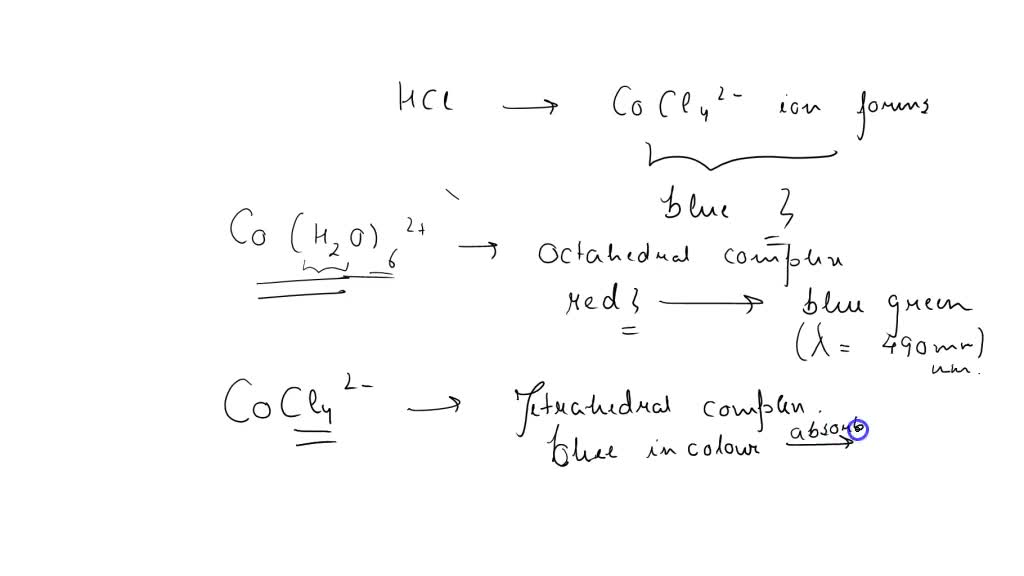 HCl → CoCl₄²⁻ ion forms
blue }
Co (H₂O)₆²⁺ → Octahedral complex
red } → blue green
(λ = 490 mm)
nm.
CoCl₄²⁻ → Tetrahedral complex.
blue in colour absorb →